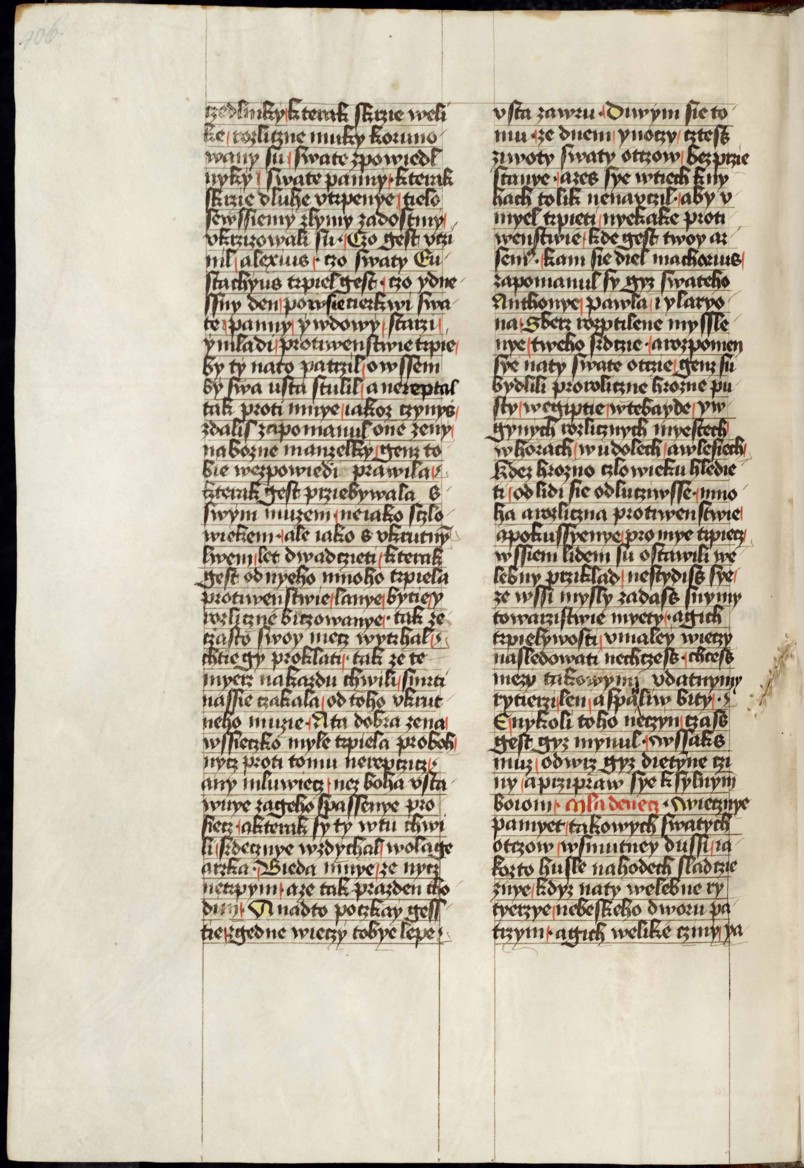 106.
czedlniky kterak skrzie weli
ke rozliczne muky koruno
wany su swate zpowiedl
nyky i swate panny kterak
skrzie dluhe vtrpenye tielo
sewssiemy zlymy zadostmy
vkrzizowali su. Czo gest vczi
nil alexius. czo swaty Eu
stachyus trpiel gest. czo ydne
ssny den powsie cierkwi swa
te panny ywdowy starzi
ymladi protiwenstwie trpie
by ty nato patrzil owssem
by swa vsta stulil a nereptal
tak proti mnye iakoz czynys
zdalis zapomanul one zeny
nabozne manzelky genz to
bie wezpowiedi prawila
kterak gest prziebywala s
swym muzem neiako sczlo
wiekem ale iako s vkrutny
lwem let dwadczieti kterak
gest odnyeho mnoho trpiela
protiwenstwie lanye bytie y
rozliczne biczowanye. tak ze
czasto swoy mecz wytrhal
chtie gy proklati. tak ze te
myerz nakazdu chwili smrti
nassie czakala od toho vkrut
neho muzie. A ta dobra zena
wssieczko myle trpiela proboh
nycz proti tomu nerepczicz
any mluwiecz nez boha vsta
wnye zageho spassenye pro
siecz akterak sy ty wtu chwi
li srdecznye wzdychal wolage
arzka. Bieda mnye ze nycz
netrpym aze tak prazden cho
dim. A nadto poczkay gess
tie gedne wieczy tobye lepe
vsta zawru. Diwym sie to
mu ze dnem ynoczy cztess
ziwoty swaty otczow bezprzie
stanye. azes sye wtiech kny
hach tolik nenauczil. aby v
myel trpieti nyekake proti
wenstwie kde gest twoy ar
sen9. kam sie diel machorius
zapomanul sy gyz swateho
Anthonye pawla i ylaryo
na. Sberz rozptilene myssle
nye tweho srdcie. a rozpomen
sye naty swate otcie genz su
bydlili prorozliczne hrozne pu
sty wegiptie wtebayde yw
gynych rozlicznych myestech
whorach wudolech awlesiech
kdez hrozno czlowieku hledie
ti od lidi sie odlucziwsse. mno
ha arozliczna protiwenstwie
apokussyenye pro mye trpiecz
wssiem lidem su ostawili we
lebny prziklad nestydiss sye
ze wssi mysly zadass snymy
towarzistwie myety. agich
trpielywosti vmaley wieczy
nasledowati nechczess. chcess
mezy takowymy vdatnymy
rytierzi len a spaliw byty.
Enykoli toho neczyn czass
gest gyz mynul. wssaks
muz odwrz gyz dietyne czi
ny aprzipraw sye ksylnym
boiom. Mladenecz. Wiecznye
pamyet takowych swatych
otczow wsmutney dussi ia
kozto husle nahodech sladcie
znye kdyz naty welebne ry
tyerzye nebeskeho dworu pa
trzym. agich welike czmy ya